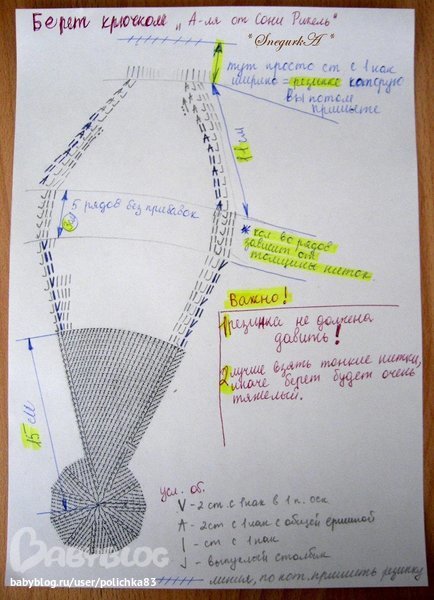 Берет крючком „А-ля от Сони Рикель"
*SnegurkA*
тут просто ст с 1 нак
ширина = резинке которую
вы потом
пришьете
11 см
5 рядов без прибавок
* кол. во рядов
зависит от
толщины ниток
Важно!
1 резинка не должна
давить!
2 лучше взять тонкие нитки,
иначе берет будет очень
тяжелый.
15 см
усл. об.
V - 2 ст. с 1 нак в 1 п. осн.
Λ - 2 ст. с 1 нак с общей вершиной
| - ст с 1 нак
- выпуклый столбик
линия, по кот. пришить резинку
BABYBLOG
babyblog.ru/user/polichka83